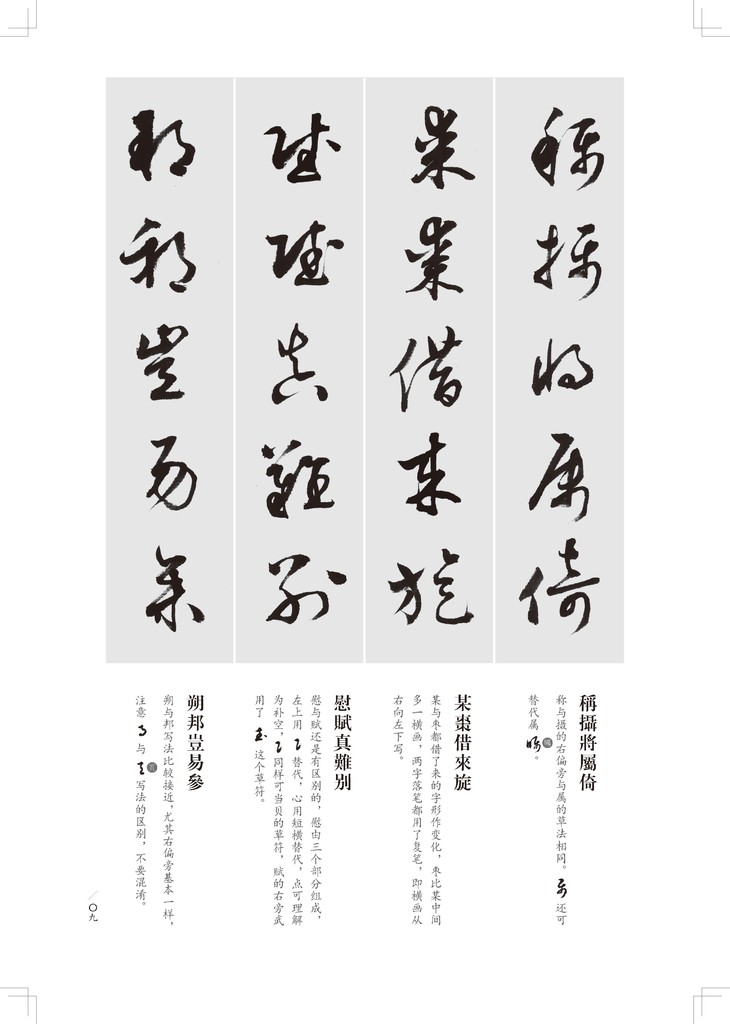 稱攝將屬倚
某棗借來旋
慰賦真難別
朔邦豈易參
稱攝將屬倚
称与摄的右偏旁与属的草法相同。还可
替代属。
某棗借來旋
某与枣都借了来的字形作变化，枣比某中间
多一横画，两字落笔都用了复笔，即横画从
右向左下写。
慰賦真難別
慰与赋还是有区别的，慰由三个部分组成，
左上用替代，心用短横替代，点可理解
为补空，同样可当贝的草符，赋的右旁武
用了这个草符。
朔邦豈易參
朔与邦写法比较接近，尤其右偏旁基本一样，
注意与写法的区别，不要混淆。
〇九